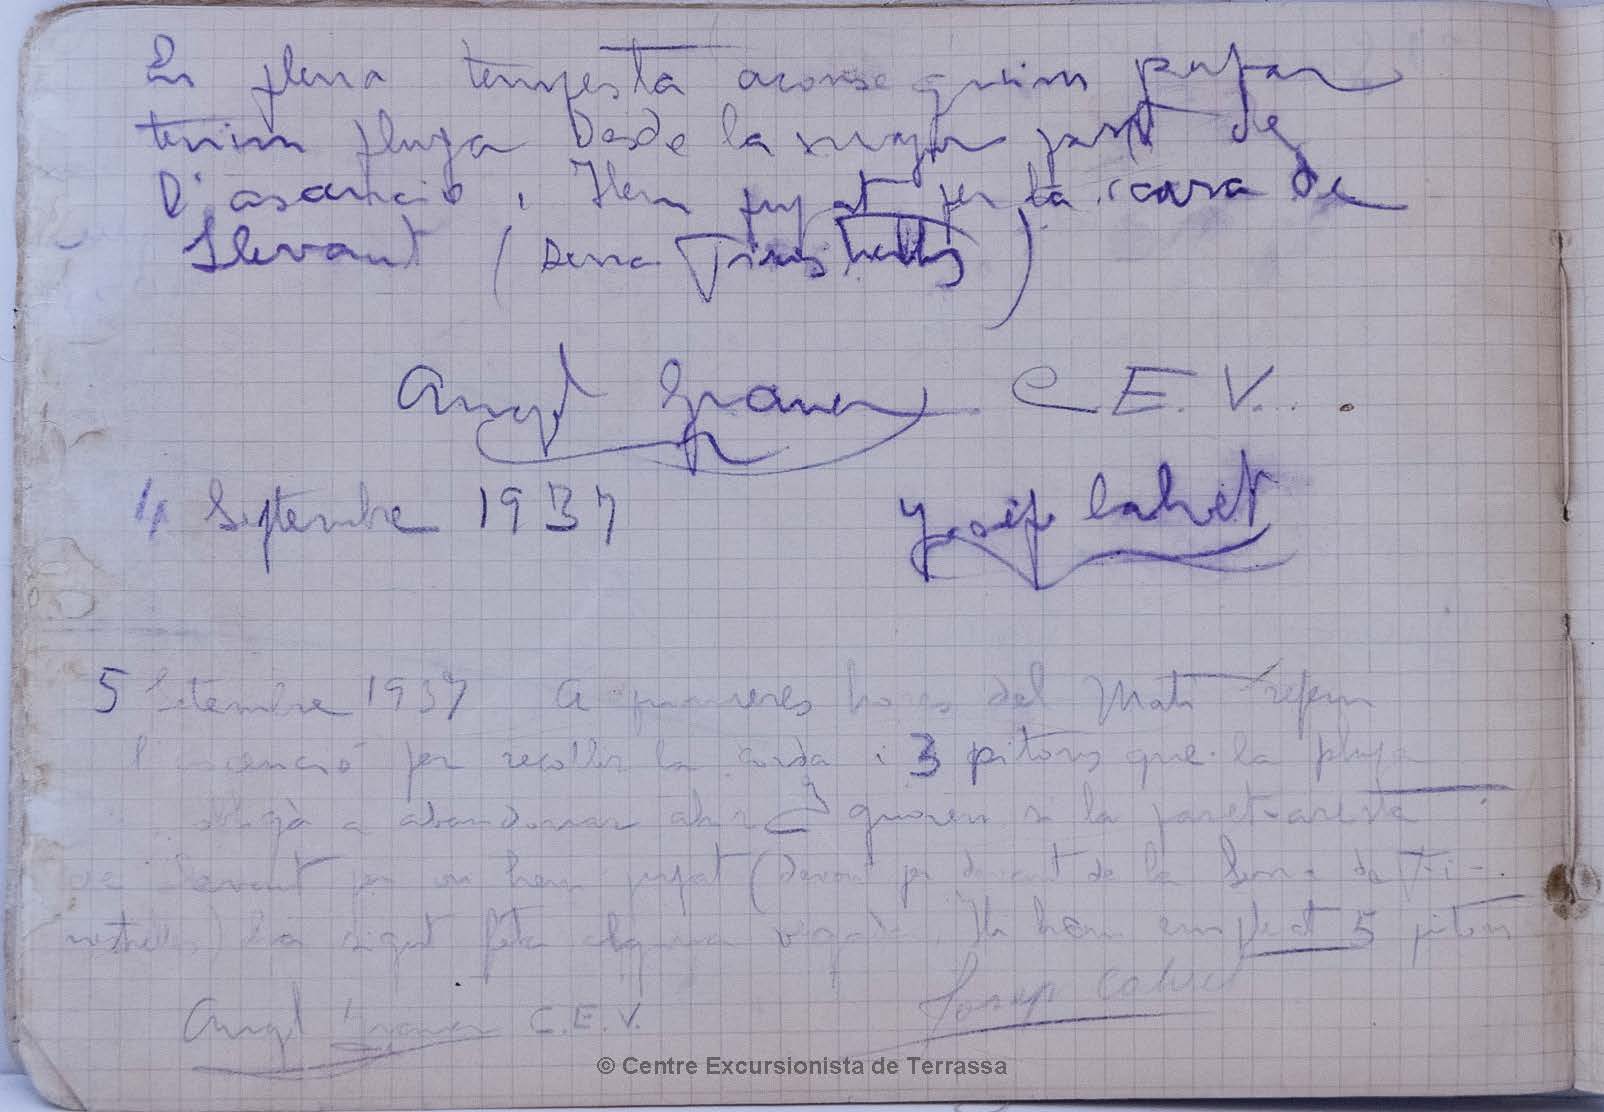 En plena tempesta aconseguim pujar
tenim pluja Desde la major part de
l'asancio, Hem pujat per la cara de
Llevant (Serra Tirinthells)
Angel Graner C.E.V...
4 Septembre 1937 Josep Calvet
5 Setembre 1937 A primeres hores del Matí refem
l'ascenció per recollir la corda i 3 pitons que la pluja
obligà a abandonar ahir. Ignorem si la paret-aresta
de Llevant per on hem pujat (Devant per devant de la Serra de Ti-
ha sigut feta alguna vegada. Hi hem empleat 5 pitons
Angel Graner C.E.V. Josep Calvet
© Centre Excursionista de Terrassa